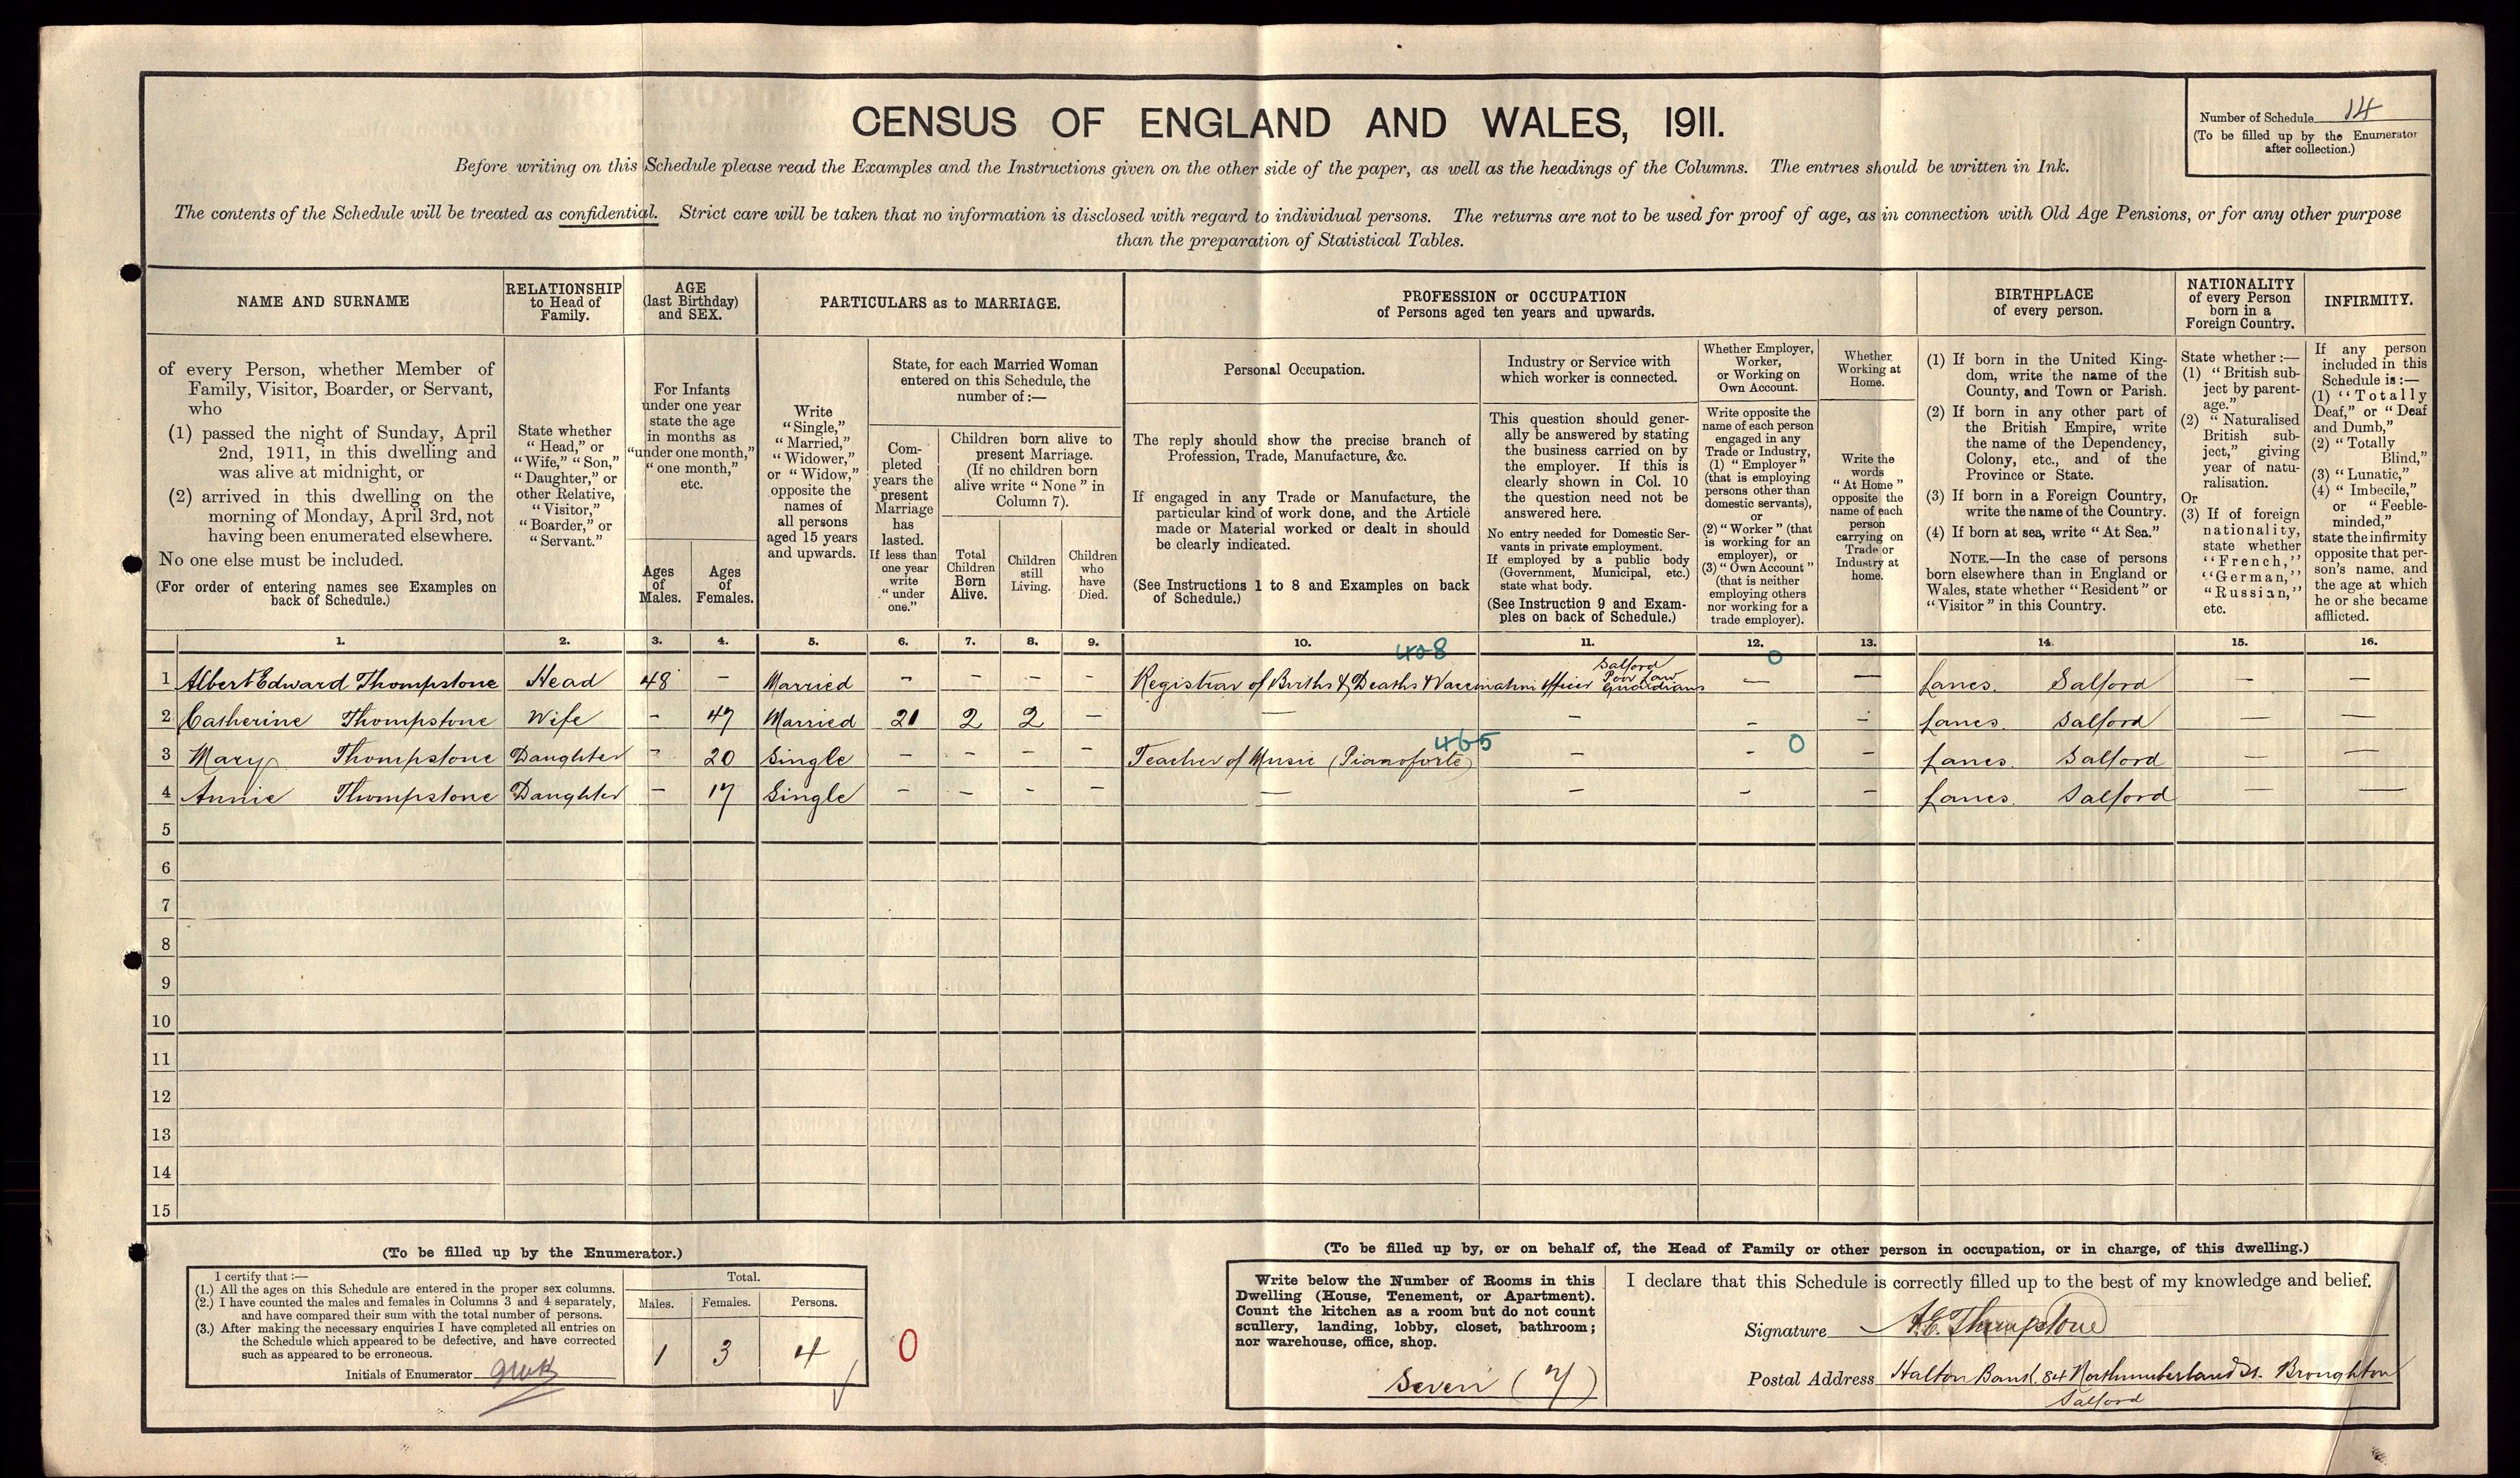 CENSUS OF ENGLAND AND WALES, 1911.
Number of Schedule 14
(To be filled up by the Enumerator
after collection.)
Before writing on this Schedule please read the Examples and the Instructions given on the other side of the paper, as well as the headings of the Columns. The entries should be written in Ink.
The contents of the Schedule will be treated as confidential. Strict care will be taken that no information is disclosed with regard to individual persons. The returns are not to be used for proof of age, as in connection with Old Age Pensions, or for any other purpose
than the preparation of Statistical Tables.
NAME AND SURNAME
of every Person, whether Member of
Family, Visitor, Boarder, or Servant,
who
(1) passed the night of Sunday, April
2nd, 1911, in this dwelling and
was alive at midnight, or
(2) arrived in this dwelling on the
morning of Monday, April 3rd, not
having been enumerated elsewhere.
No one else must be included.
(For order of entering names see Examples on
back of Schedule.)
RELATIONSHIP
to Head of
Family.
State whether
"Head," or
"Wife," "Son,"
"Daughter," or
other Relative,
"Visitor,"
"Boarder," or
"Servant."
AGE
(last Birthday)
and SEX.
For Infants
under one year
state the age
in months as
"under one month,"
"one month,"
etc.
Ages
of
Males.
Ages
of
Females.
PARTICULARS as to MARRIAGE.
Write
"Single,"
"Married,"
"Widower,"
or "Widow,"
opposite the
names of
all persons
aged 15 years
and upwards.
State, for each Married Woman
entered on this Schedule, the
number of :—
Com-
pleted
years the
present
Marriage
has
lasted.
If less than
one year
write
"under
one."
Children born alive to
present Marriage.
(If no children born
alive write "None" in
Column 7).
Total
Children
Born
Alive.
Children
still
Living.
Children
who
have
Died.
PROFESSION or OCCUPATION
of Persons aged ten years and upwards.
Personal Occupation.
The reply should show the precise branch of
Profession, Trade, Manufacture, &c.
If engaged in any Trade or Manufacture, the
particular kind of work done, and the Article
made or Material worked or dealt in should
be clearly indicated.
(See Instructions 1 to 8 and Examples on back
of Schedule.)
Industry or Service with
which worker is connected.
This question should gener-
ally be answered by stating
the business carried on by
the employer. If this is
clearly shown in Col. 10
the question need not be
answered here.
No entry needed for Domestic Ser-
vants in private employment.
If employed by a public body
(Government, Municipal, etc.)
state what body.
(See Instruction 9 and Exam-
ples on back of Schedule.)
Whether Employer,
Worker,
or Working on
Own Account.
Write opposite the
name of each person
engaged in any
Trade or Industry,
(1) "Employer"
(that is employing
persons other than
domestic servants),
or
(2) "Worker" (that
is working for an
employer), or
(3) "Own Account"
(that is neither
employing others
nor working for a
trade employer).
Whether
Working at
Home.
Write the
words
"At Home"
opposite the
name of each
person
carrying on
Trade or
Industry at
home.
BIRTHPLACE
of every person.
(1) If born in the United King-
dom, write the name of the
County, and Town or Parish.
(2) If born in any other part of
the British Empire, write
the name of the Dependency,
Colony, etc., and of the
Province or State.
(3) If born in a Foreign Country,
write the name of the Country.
(4) If born at sea, write "At Sea."
NOTE.—In the case of persons
born elsewhere than in England or
Wales, state whether "Resident" or
"Visitor" in this Country.
NATIONALITY
of every Person
born in a
Foreign Country.
State whether :—
(1) "British sub-
ject by parent-
age."
(2) "Naturalised
British sub-
ject," giving
year of natu-
ralisation.
Or
(3) If of foreign
nationality,
state whether
"French,"
"German,"
"Russian,"
etc.
INFIRMITY.
If any person
included in this
Schedule is :—
(1) "Totally
Deaf," or "Deaf
and Dumb,"
(2) "Totally
Blind,"
(3) "Lunatic,"
(4) "Imbecile,"
or "Feeble-
minded,"
state the infirmity
opposite that per-
son's name, and
the age at which
he or she became
afflicted.
1. 2. 3. 4. 5. 6. 7. 8. 9. 10. 11. 12. 13. 14. 15. 16.
408 0
1 Albert Edward Thompstone Head 48 – Married – – – – Registrar of Births & Deaths & Vaccination Officer Salford Poor Law Guardians — — Lancs. Salford — —
2 Catherine Thompstone Wife – 47 Married 21 2 2 – — – – – Lancs. Salford — —
465 0
3 Mary Thompstone Daughter – 20 Single – – – – Teacher of Music (Pianoforte) – – – Lancs. Salford — —
4 Annie Thompstone Daughter – 17 Single – – – – — – – – Lancs. Salford — —
5
6
7
8
9
10
11
12
13
14
15
(To be filled up by the Enumerator.)
I certify that :—
(1.) All the ages on this Schedule are entered in the proper sex columns.
(2.) I have counted the males and females in Columns 3 and 4 separately,
and have compared their sum with the total number of persons.
(3.) After making the necessary enquiries I have completed all entries on
the Schedule which appeared to be defective, and have corrected
such as appeared to be erroneous.
Initials of Enumerator
Total.
Males. Females. Persons.
1 3 4
0
(To be filled up by, or on behalf of, the Head of Family or other person in occupation, or in charge, of this dwelling.)
Write below the Number of Rooms in this
Dwelling (House, Tenement, or Apartment).
Count the kitchen as a room but do not count
scullery, landing, lobby, closet, bathroom;
nor warehouse, office, shop.
Seven (7)
I declare that this Schedule is correctly filled up to the best of my knowledge and belief.
Signature A.E. Thompstone
Postal Address Halton Bank. 84 Northumberland St. Broughton
Salford